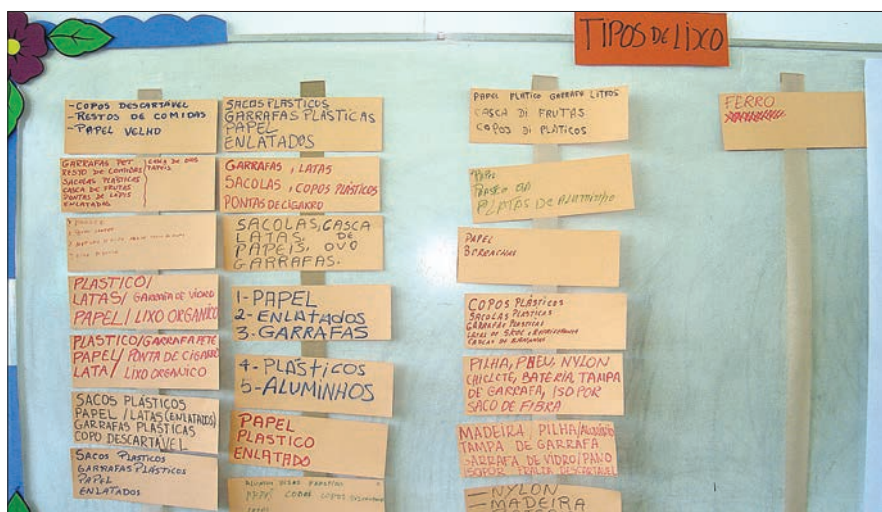 TIPOS DE LIXO
-COPOS DESCARTÁVEL
-RESTOS DE COMIDAS
-PAPEL VELHO
GARRAFAS PET
RESTO DE COMIDAS
SACOLAS PLÁSTICAS
CASCA DE FRUTAS
PONTAS DE LÁPIS
ENLATADOS
CASCA DE OVO
PAPEIS
PLASTICO/
LATAS/ GARRAFA DE VIDRO
PAPEL/ LIXO ORGANICO
PLASTICO/GARRAFA PETE
PAPEL/ PONTA DE CIGARRO
LATA/ LIXO ORGANICO
SACOS PLÁSTICOS
PAPEL /LATAS(ENLATADOS)
GARRAFAS PLASTICAS
COPO DESCARTÁVEL
SACOS PLASTICOS
GARRAFAS PLÁSTICOS
PAPEL
ENLATADOS
SACOS PLASTICOS
GARRAFAS PLASTICAS
PAPEL
ENLATADOS
GARRAFAS, LATAS
SACOLAS, COPOS PLÁSTICOS
PONTAS DE CIGARRO
SACOLAS, CASCA
LATAS. DE
PAPEIS. OVO
GARRAFAS.
1-PAPEL
2-ENLATADOS
3-GARRAFAS
4-PLÁSTICOS
5-ALUMINHOS
PAPEL
PLASTICO
ENLATADO
PAPEL COPOS
PAPEL PLATICO GARRAFO LITROS
CASCA DI FRUTAS
COPOS DI PLATICOS
PLATAS DE ALUMINHO
PAPEL
BORRACHAS
COPOS PLÁSTICOS
SACOLAS PLASTICAS
GARRAFAS PLASTICAS
PILHA, PNEU, NYLON
CHICLETE, BATERIA, TAMPA
DE GARRAFA, ISO POR
SACO DE FIBRA
MADEIRA / PILHA/
TAMPA DE GARRAFA
GARRAFA DE VIDRO/PANO
ISOPOR FRALTA DESCARTAVEL
-NYLON
-MADEIRA
FERRO